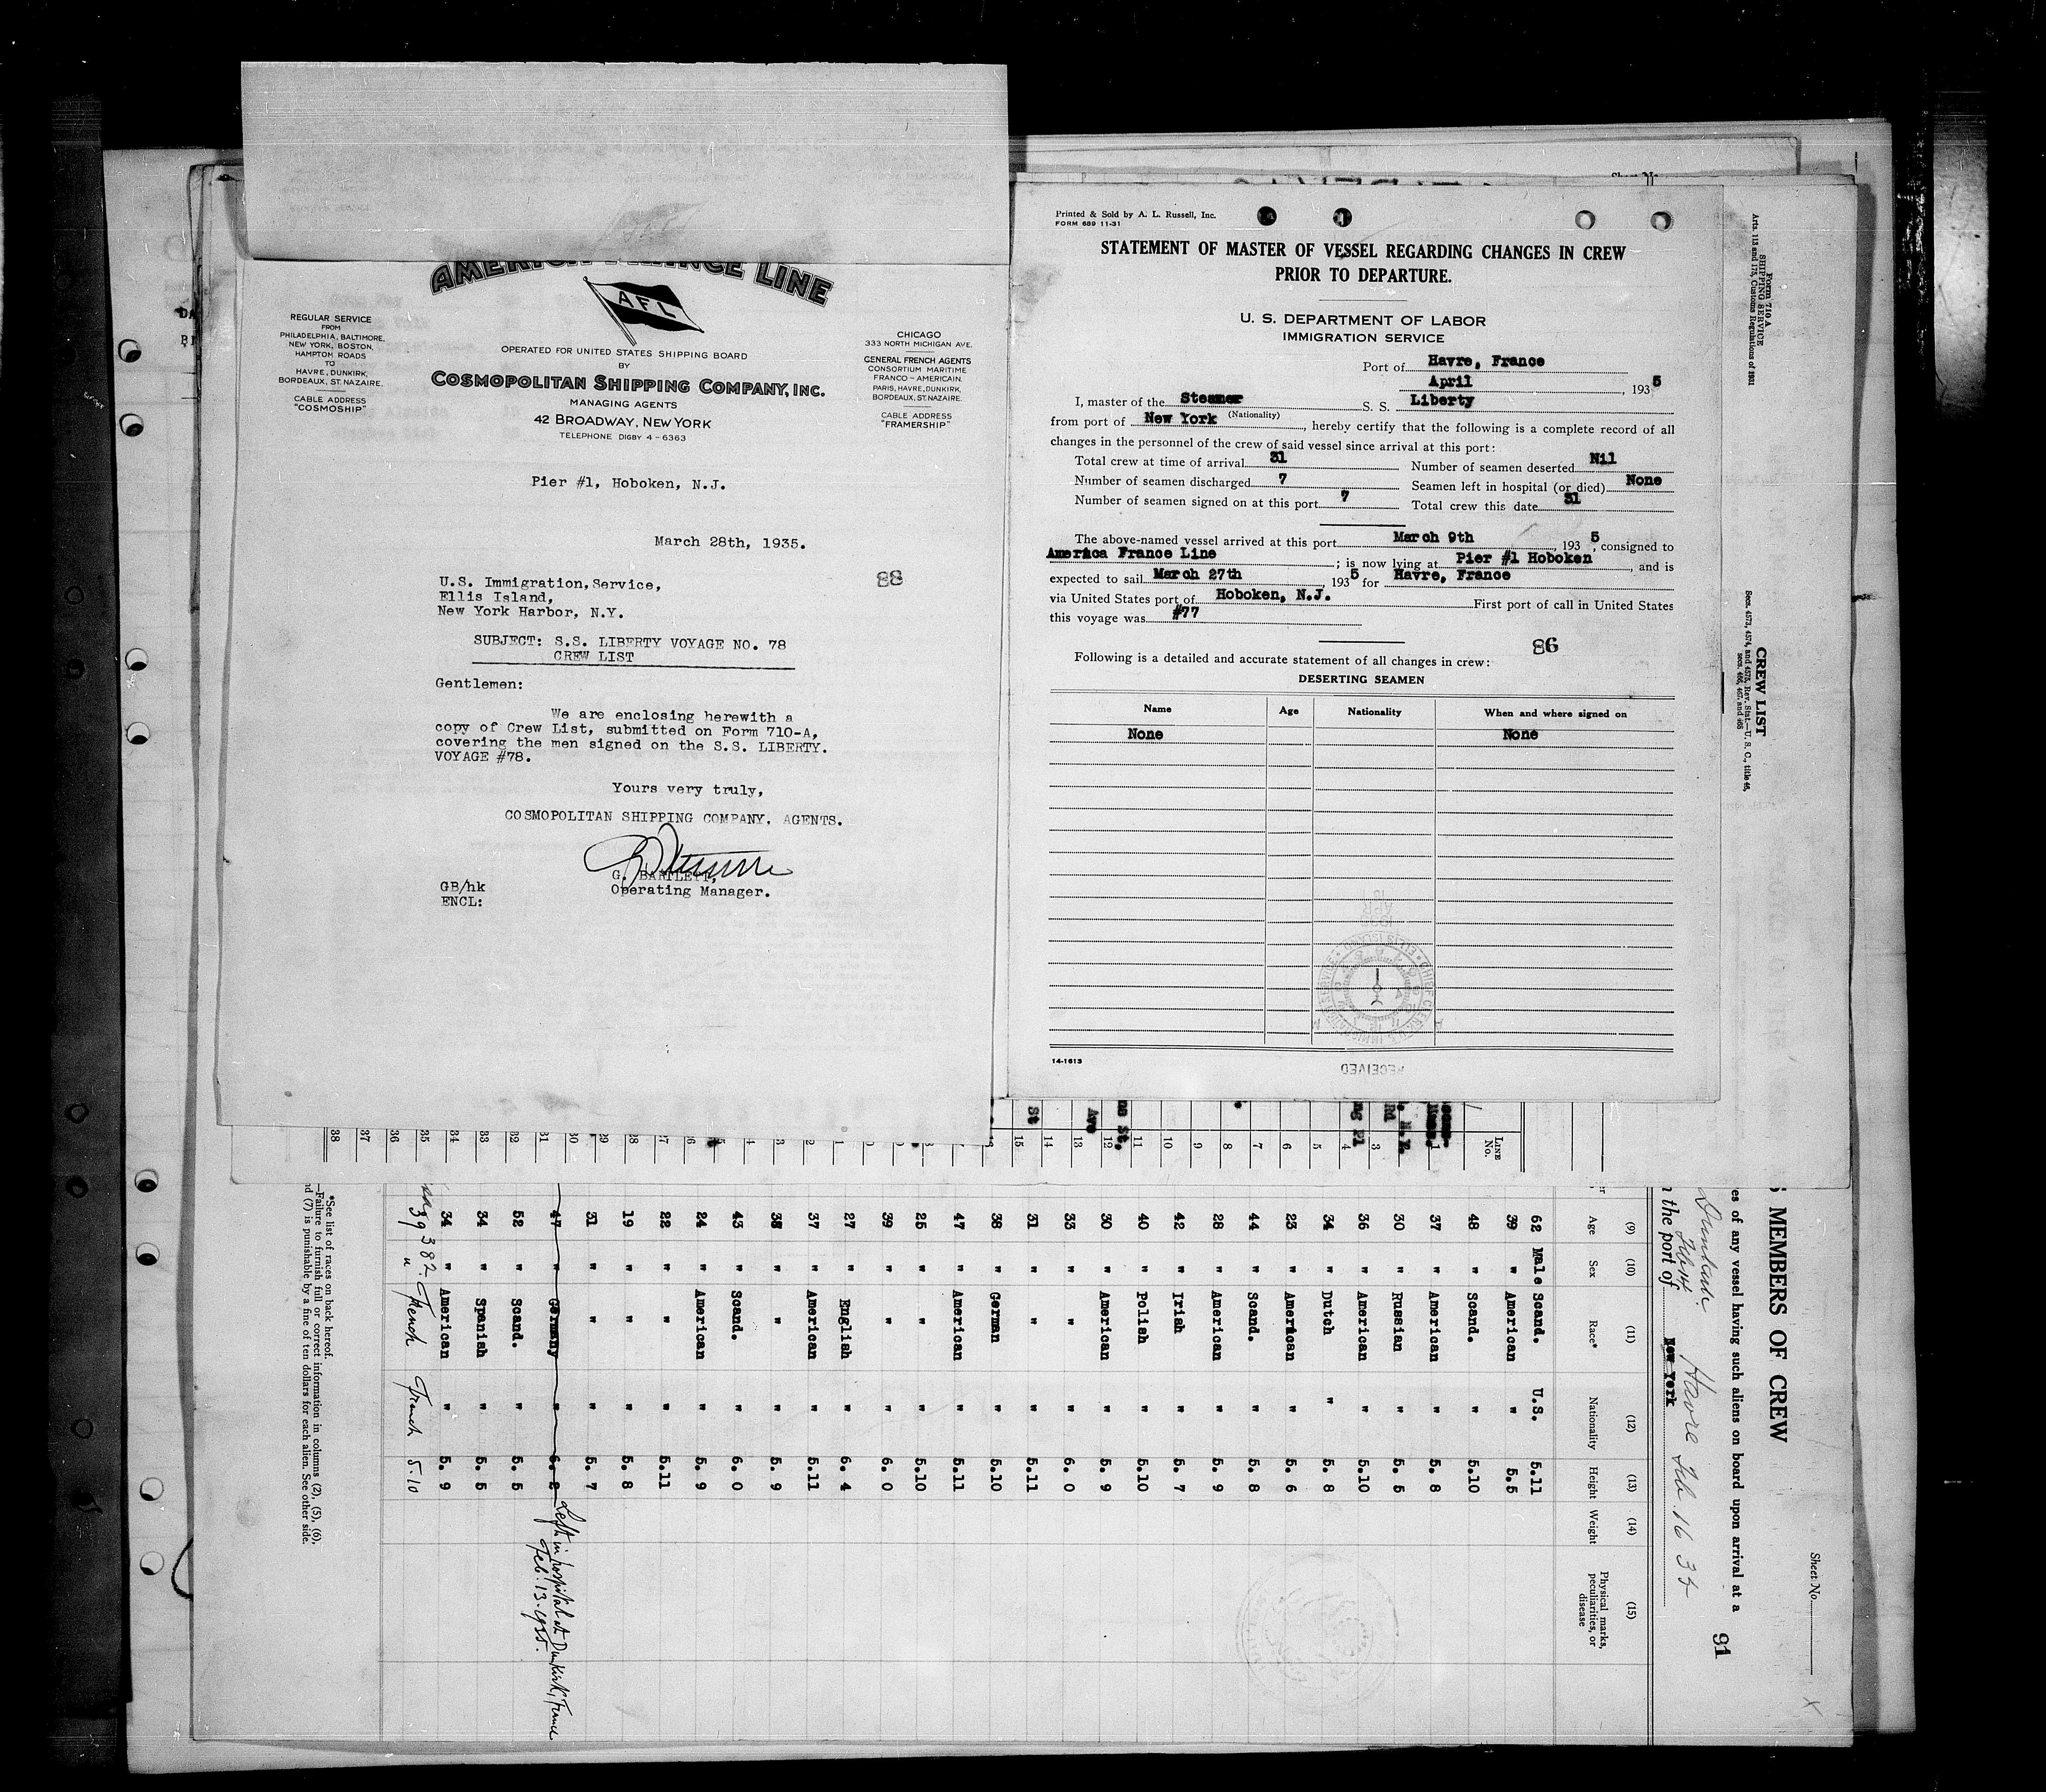 AMERICA FRANCE LINE
AFL
REGULAR SERVICE
FROM
PHILADELPHIA, BALTIMORE,
NEW YORK, BOSTON,
HAMPTON ROADS
TO
HAVRE, DUNKIRK,
BORDEAUX, ST. NAZAIRE.
CABLE ADDRESS
"COSMOSHIP"
OPERATED FOR UNITED STATES SHIPPING BOARD
BY
COSMOPOLITAN SHIPPING COMPANY, INC.
MANAGING AGENTS
42 BROADWAY, NEW YORK
TELEPHONE DIGBY 4-6363
CHICAGO
333 NORTH MICHIGAN AVE.
GENERAL FRENCH AGENTS
CONSORTIUM MARITIME
FRANCO-AMERICAIN.
PARIS, HAVRE, DUNKIRK,
BORDEAUX, ST. NAZAIRE.
CABLE ADDRESS
"FRAMERSHIP"
Pier #1, Hoboken, N.J.
March 28th, 1935.
88
U.S. Immigration, Service,
Ellis Island,
New York Harbor, N.Y.
SUBJECT: S.S. LIBERTY VOYAGE NO. 78
CREW LIST
Gentlemen:
We are enclosing herewith a
copy of Crew List, submitted on Form 710-A,
covering the men signed on the S.S. LIBERTY.
VOYAGE #78.
Yours very truly,
COSMOPOLITAN SHIPPING COMPANY, AGENTS.
G. BARTLETT,
Operating Manager.
GB/hk
ENCL:
Printed & Sold by A. L. Russell, Inc.
FORM 689 11-31
STATEMENT OF MASTER OF VESSEL REGARDING CHANGES IN CREW
PRIOR TO DEPARTURE.
U. S. DEPARTMENT OF LABOR
IMMIGRATION SERVICE
Port of Havre, France
April, 1935
I, master of the Steamer S. S. Liberty
(Nationality)
from port of New York, hereby certify that the following is a complete record of all
changes in the personnel of the crew of said vessel since arrival at this port:
Total crew at time of arrival 31 Number of seamen deserted Nil
Number of seamen discharged 7 Seamen left in hospital (or died) None
Number of seamen signed on at this port 7 Total crew this date 31
The above-named vessel arrived at this port March 9th 1935, consigned to
America France Line; is now lying at Pier #1 Hoboken, and is
expected to sail March 27th, 1935 for Havre, France
via United States port of Hoboken, N.J. First port of call in United States
this voyage was #77
86
Following is a detailed and accurate statement of all changes in crew:
DESERTING SEAMEN
Name Age Nationality When and where signed on
None None
14-1613
RECEIVED
Form 710 A
SHIPPING SERVICE
Arts. 113 and 175, Customs Regulations of 1931
CREW LIST
Secs. 4573, 4574, and 4575, Rev. Stat.—U. S. C., title 46,
secs. 466, 467, and 468
LINE No.
Sheet No.
91
MEMBERS OF CREW
es of any vessel having such aliens on board upon arrival at a
Dunkirk Havre Feb. 16 35
Feb 14
the port of New York
(9) (10) (11) (12) (13) (14) (15)
Age Sex Race* Nationality Height Weight Physical marks, peculiarities, or disease
62 Male Scand. U.S. 5.11
39 " American " 5.5
48 " Scand. " 5.10
37 " American " 5. 8
30 " Russian " 5. 5
36 " American " 5.10
34 " Dutch " 5. 8
23 " American " 5. 6
44 " Scand. " 5. 8
28 " American " 5. 9
42 " Irish " 5. 7
40 " Polish " 5.10
30 " American " 5. 9
33 " " " 6. 0
31 " " " 5.11
38 " German " 5.10
47 " American " 5.11
25 " " " 5.10
39 " " " 6. 0
27 " English " 6. 4
37 " American " 5.11
38 " " " 5. 9
43 " Scand. " 6. 0
24 " American " 5. 9
22 " " " 5.11
19 " " " 5. 8
31 " " " 5. 7
47 " Germany " 6. 2 Left in hospital at Dunkirk, France
Feb. 13. 1935.
52 " Scand. " 5. 5
34 " Spanish " 5. 5
34 " American " 5. 9
39382 " French French 5.10
*See list of races on back hereof.
—Failure to furnish full or correct information in columns (2), (5), (6),
nd (7) is punishable by a fine of ten dollars for each alien. See other side.